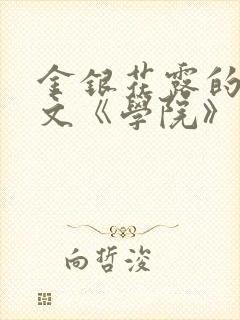 金銀花露的
文《學院》
向哲浚